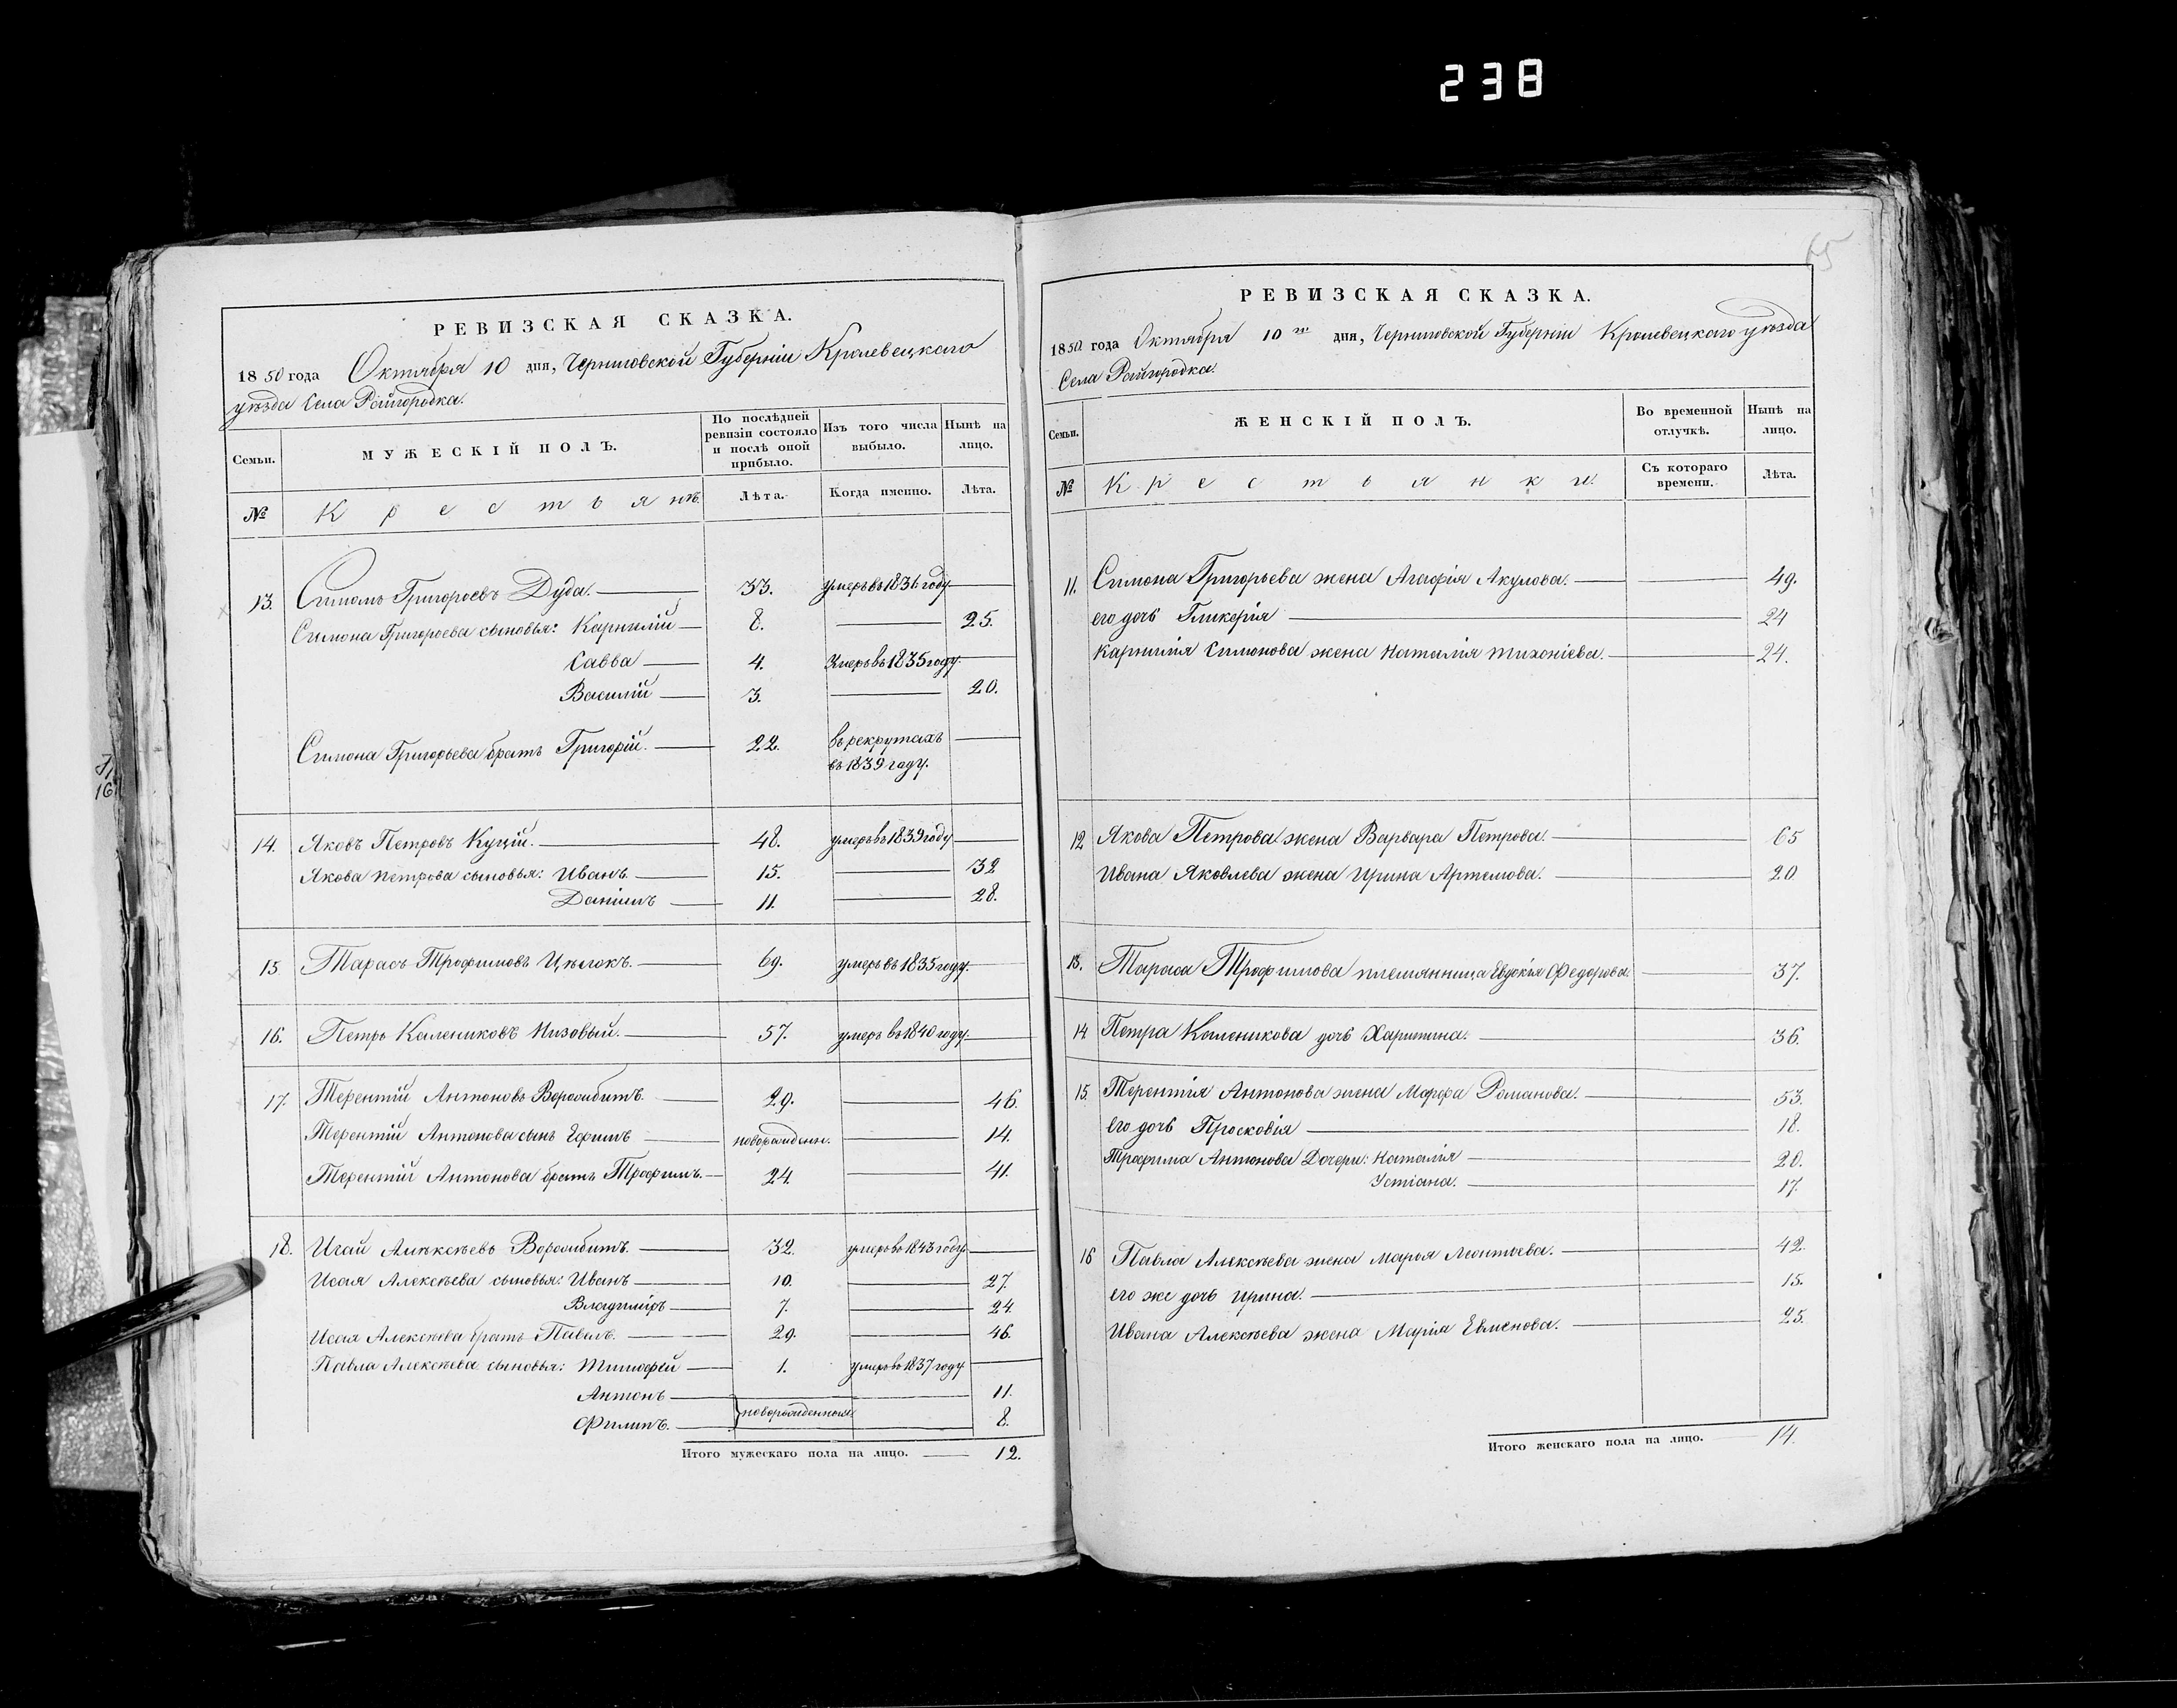 238
65
РЕВИЗСКАЯ СКАЗКА.
1850 года Октября 10 дня, Черниговской Губерніи Кролевецкаго
уѣзда Села Райгородка.
Семьи.
МУЖЕСКІЙ ПОЛЪ.
По послѣдней ревизіи состояло и послѣ оной прибыло.
Изъ того числа выбыло.
Нынѣ на лицо.
№
Крестьянъ
Лѣта.
Когда именно.
Лѣта.
13. Симонъ Григорьевъ Дуда. 33. умеръ въ 1836 году
Симона Григорьева сыновья: Карнилій 8. 25.
Савва 4. Умеръ въ 1835 году.
Василій 3. 20.
Симона Григорьева братъ Григорій. 22. въ рекрутахъ
въ 1839 году.
14. Яковъ Петровъ Куцій. 48. умеръ въ 1839 году
Якова Петрова сыновья: Иванъ 15. 32
Даніилъ 11. 28.
15. Тарасъ Трофимовъ Цѣлокъ. 69. умеръ въ 1835 году.
16. Петръ Калениковъ Низовый. 57. умеръ въ 1840 году.
17. Терентій Антоновъ Ворожбитъ. 29. 46.
Терентій Антонова сынъ Ефимъ новорожден. 14.
Терентій Антонова братъ Трофимъ. 24. 41.
18. Исай Алексѣевъ Ворожбитъ. 32. умеръ въ 1843 году.
Исая Алексѣева сыновья: Иванъ 10. 27.
Владиміръ 7. 24.
Исая Алексѣева братъ Павелъ. 29. 46.
Павла Алексѣева сыновья: Тимофей 1. умеръ въ 1837 году
Антонъ 11.
новорожденныя
Филипъ. 8.
Итого мужескаго пола на лицо. 12.
РЕВИЗСКАЯ СКАЗКА.
1850 года Октября 10 го дня, Черниговской Губерніи Кролевецкаго уѣзда
Села Райгородка.
Семьи.
ЖЕНСКІЙ ПОЛЪ.
Во временной отлучкѣ.
Нынѣ на лицо.
№
Крестьянки.
Съ котораго времени.
Лѣта.
11. Симона Григорьева жена Агафія Акулова. 49.
его дочь Гликерія 24
Карнилія Симонова жена Наталія Тихоніева. 24.
12 Якова Петрова жена Варвара Петрова. 65
Ивана Яковлева жена Ирина Артемова. 20
13. Тараса Трофимова племянница Евдокія Федорова. 37.
14 Петра Каленикова дочь Харитина. 36.
15. Терентія Антонова жена Марфа Романова. 53.
его дочь Просковія 18.
Трофима Антонова Дочери: Наталія 20.
Устіана. 17.
16 Павла Алексѣева жена Марья Леонтьева. 42.
его же дочь Ирина. 15.
Ивана Алексѣева жена Марія Евменова. 25.
Итого женскаго пола на лицо. 14.